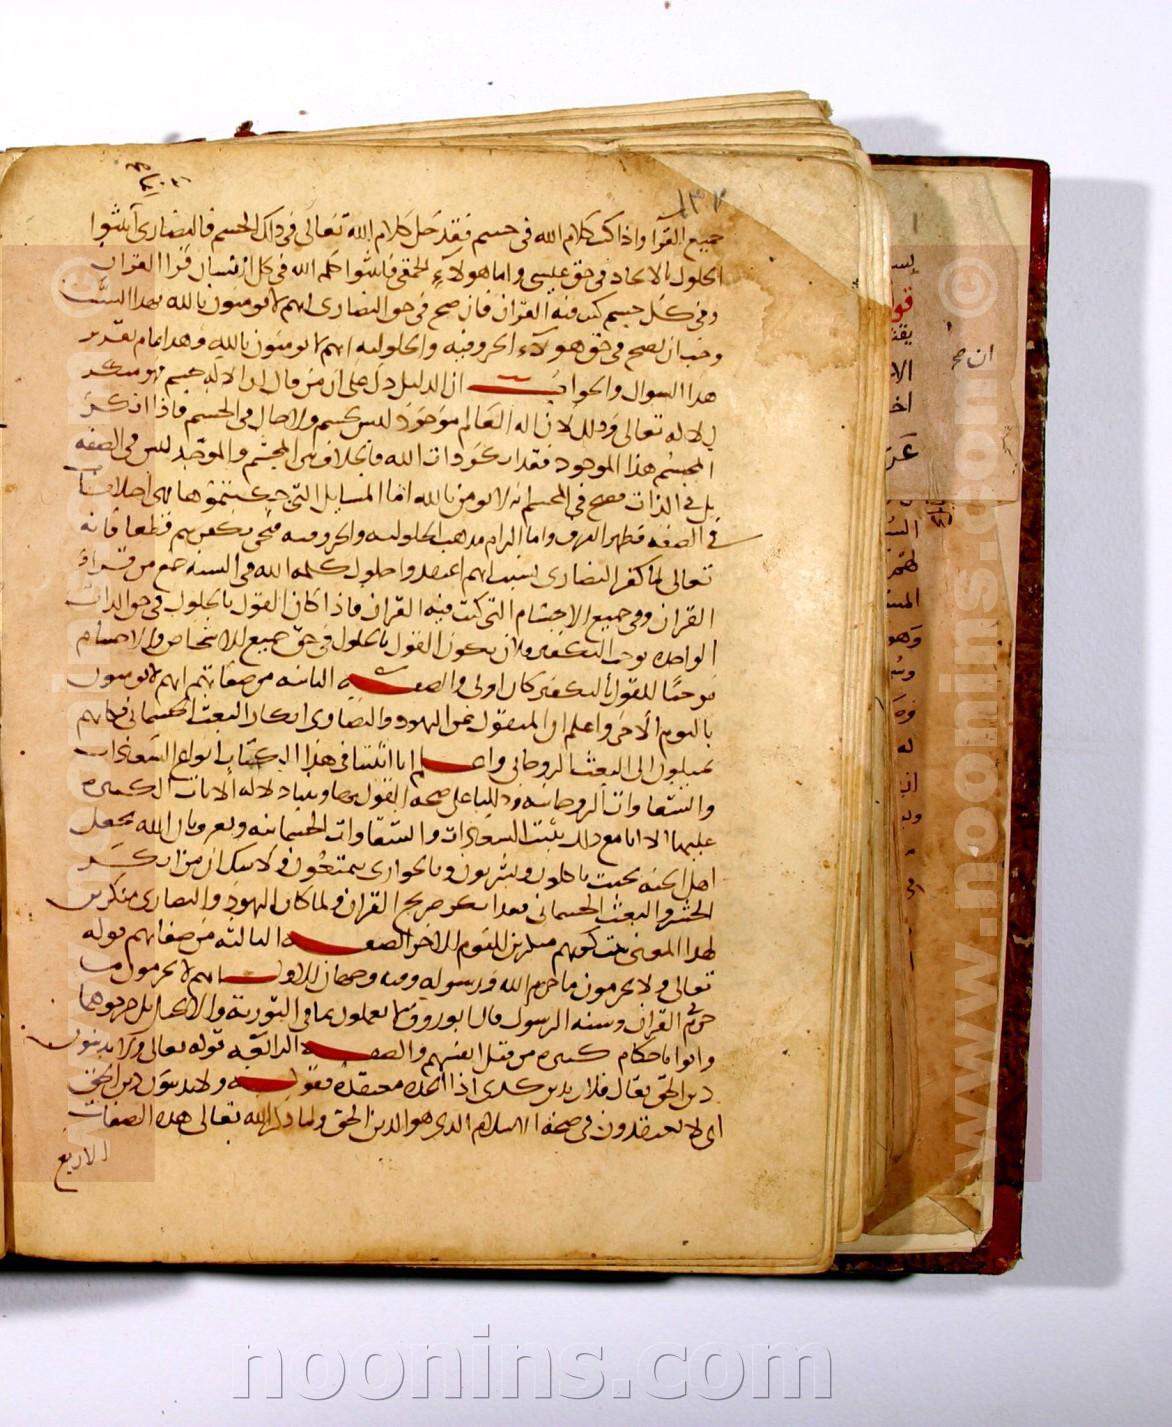 ١٣٢
جميع القرآ واذا كتب كلام الله في جسم فقد حل كلام الله تعالى في ذلك الجسم فالنصارى اثبتوا
الحلول والاتحاد في حق عيسى واما هولآءِ الحمقى فاثبتوا كلمه الله في كل انسان قرا القران
وفي كل جسم كتب فيه القران فان صح في حق النصارى انهم لا يومنون بالله بهذا السبب
وجب ان يصح في حق هولآء الحروفيه والحلوليه انهم لا يومنون بالله وهذا امام تقدير
هذا السوال والجواب ان الدليل دل على ان من قال ان الاله جسم فهو منكر
للاله تعالى وذلك لان اله العالم موجود ليس بجسم ولا حال في الجسم فاذا انكر
المجسم هذا الموجود فقد انكر ذات الله فالخلاف بين المجسم والموحد ليس في الصفه
بل في الذات فصح في المجسم انه لا يومن بالله اما المسايل التي حكيتموها فهي اختلافات
في الصفه فظهر الفرق واما الزام مذهب الحلوليه والحروفيه فنحن نكفرهم قطعا فانه
تعالى لما كفر النصارى بسبب انهم اعتقدوا حلول كلمه الله في السنه جميع من قرأ
القران وفي جميع الاجسام التي كتب فيه القران فاذا كان القول بالحلول في حق الذات
الواحده يوجب التكفير فلان يكون القول بالحلول في حق جميع الاشخاص والاجسام
موجبًا للقول بالتكفير كان اولى والصفه الثانيه من صفاتهم انهم لا يومنون
باليوم الأخر واعلم ان المنقول عن اليهود والنصارى انكار البعث الجسماني فكانهم
يميلون الى البعث الروحاني واعلم انا اثبتنا في هذا الكتاب انواع السعادات
والشقاوات الروحانيه ودللنا على صحه القول بها وبينا دلاله الايات الكثيره
عليها الا انا مع ذلك نثبت السعادات والشقاوات الجسمانيه ونعترف بان الله يجعل
اهل الجنه بحيث ياكلون ويشربون وبالحواري يتمتعون ولا شك ان من انكر
الحشر والبعث الجسماني فقد انكر صريح القران ولما كان اليهود والنصارى منكرين
لهذا المعنى ثبت كونهم منكرين لليوم الاخر الصفه الثالثه من صفاتهم قوله
تعالى ولا يحرمون ما حرم الله ورسوله وفيه وجهان الاول انهم لا يحرمون ما
حرم في القران وسنه الرسول قال ابو روق لا يعملون بما في التورية والانجيل بل حرفوهما
واتوا باحكام كثيره من قبل انفسهم والصفه الرابعه قوله تعالى ولا يدينون
دين الحق يقال فلان يدين بكذى اذا اتخذه معتقده فقوله ولا يدينون دين الحق
اي لا يعتقدون في صحه الاسلام الذي هو الدين الحق ولما ذكر الله تعالى هذه الصفات
الاربع
ان صح
© www.noonins.com
noonins.com